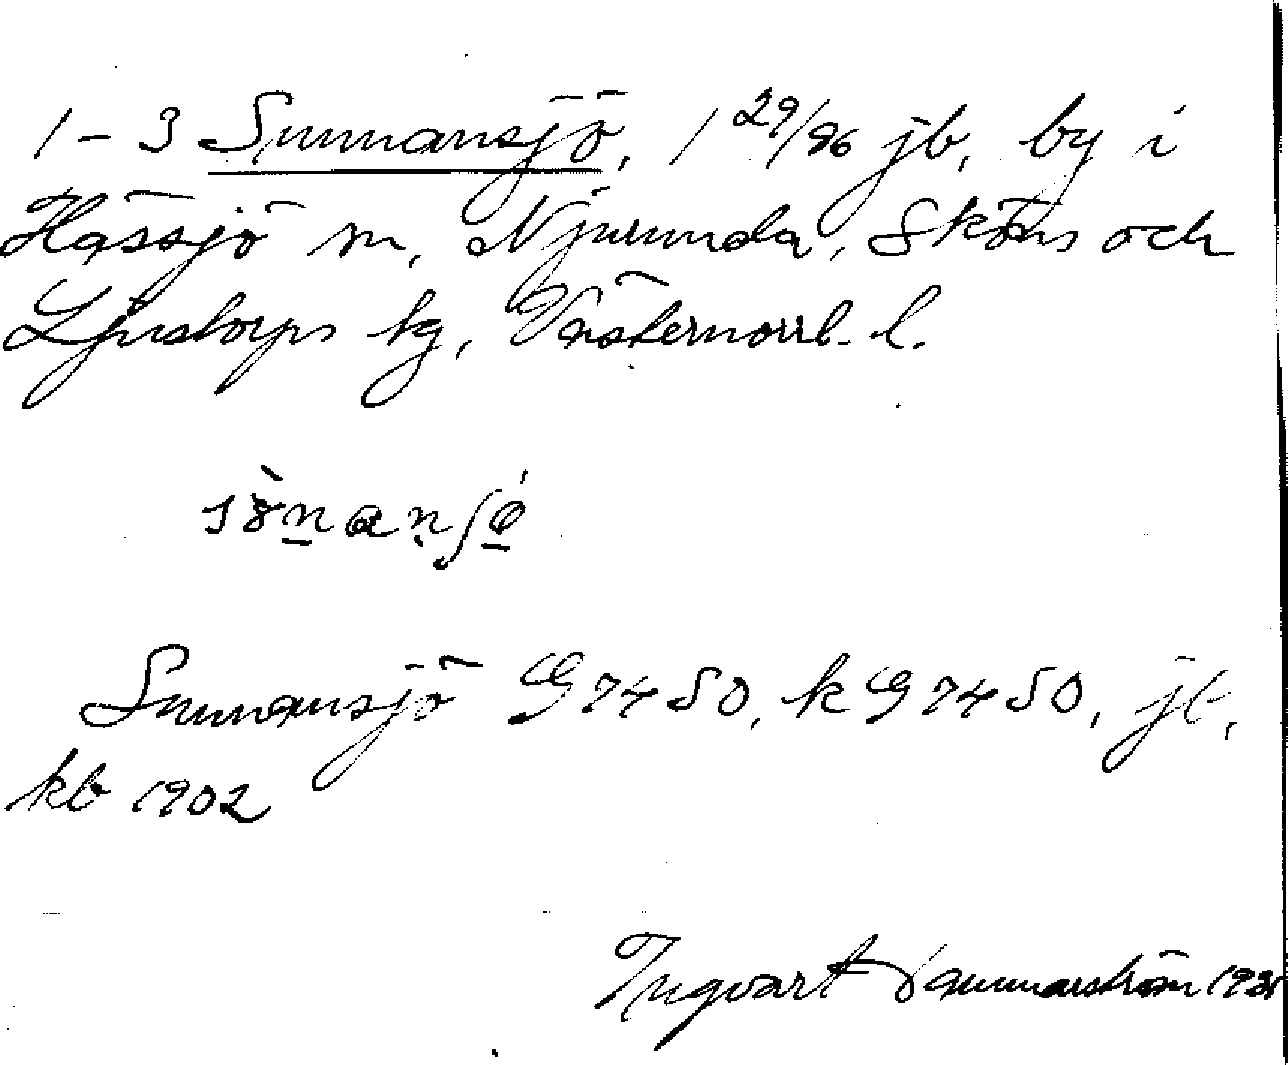 1-3 Sunnansjö, 1 29/96 jb, by i
Hässjö sn, Njurunda, Sköns och
Ljustorps tg, Västernorrl. l.
Sunnansjö G 7450, k G 7450, jb,
kb 1902
Ingvart